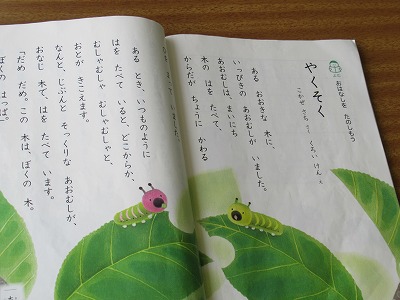 おはなしを たのしもう
やくそく
こかぜ さち さく くろい けん え
ある おおきな 木に、
いっぴきの あおむしが いました。
あおむしは、まいにち
木の はを たべて、
からだが ちょうに かわる
ある とき、いつものように
はを たべて いると、どこからか、
むしゃむしゃ むしゃむしゃと、
おとが きこえます。
なんと、じぶんと そっくりな あおむしが、
おなじ 木で、はを たべて います。
「だめ だめ。この 木は、ぼくの 木。
ぼくの はっぱ。